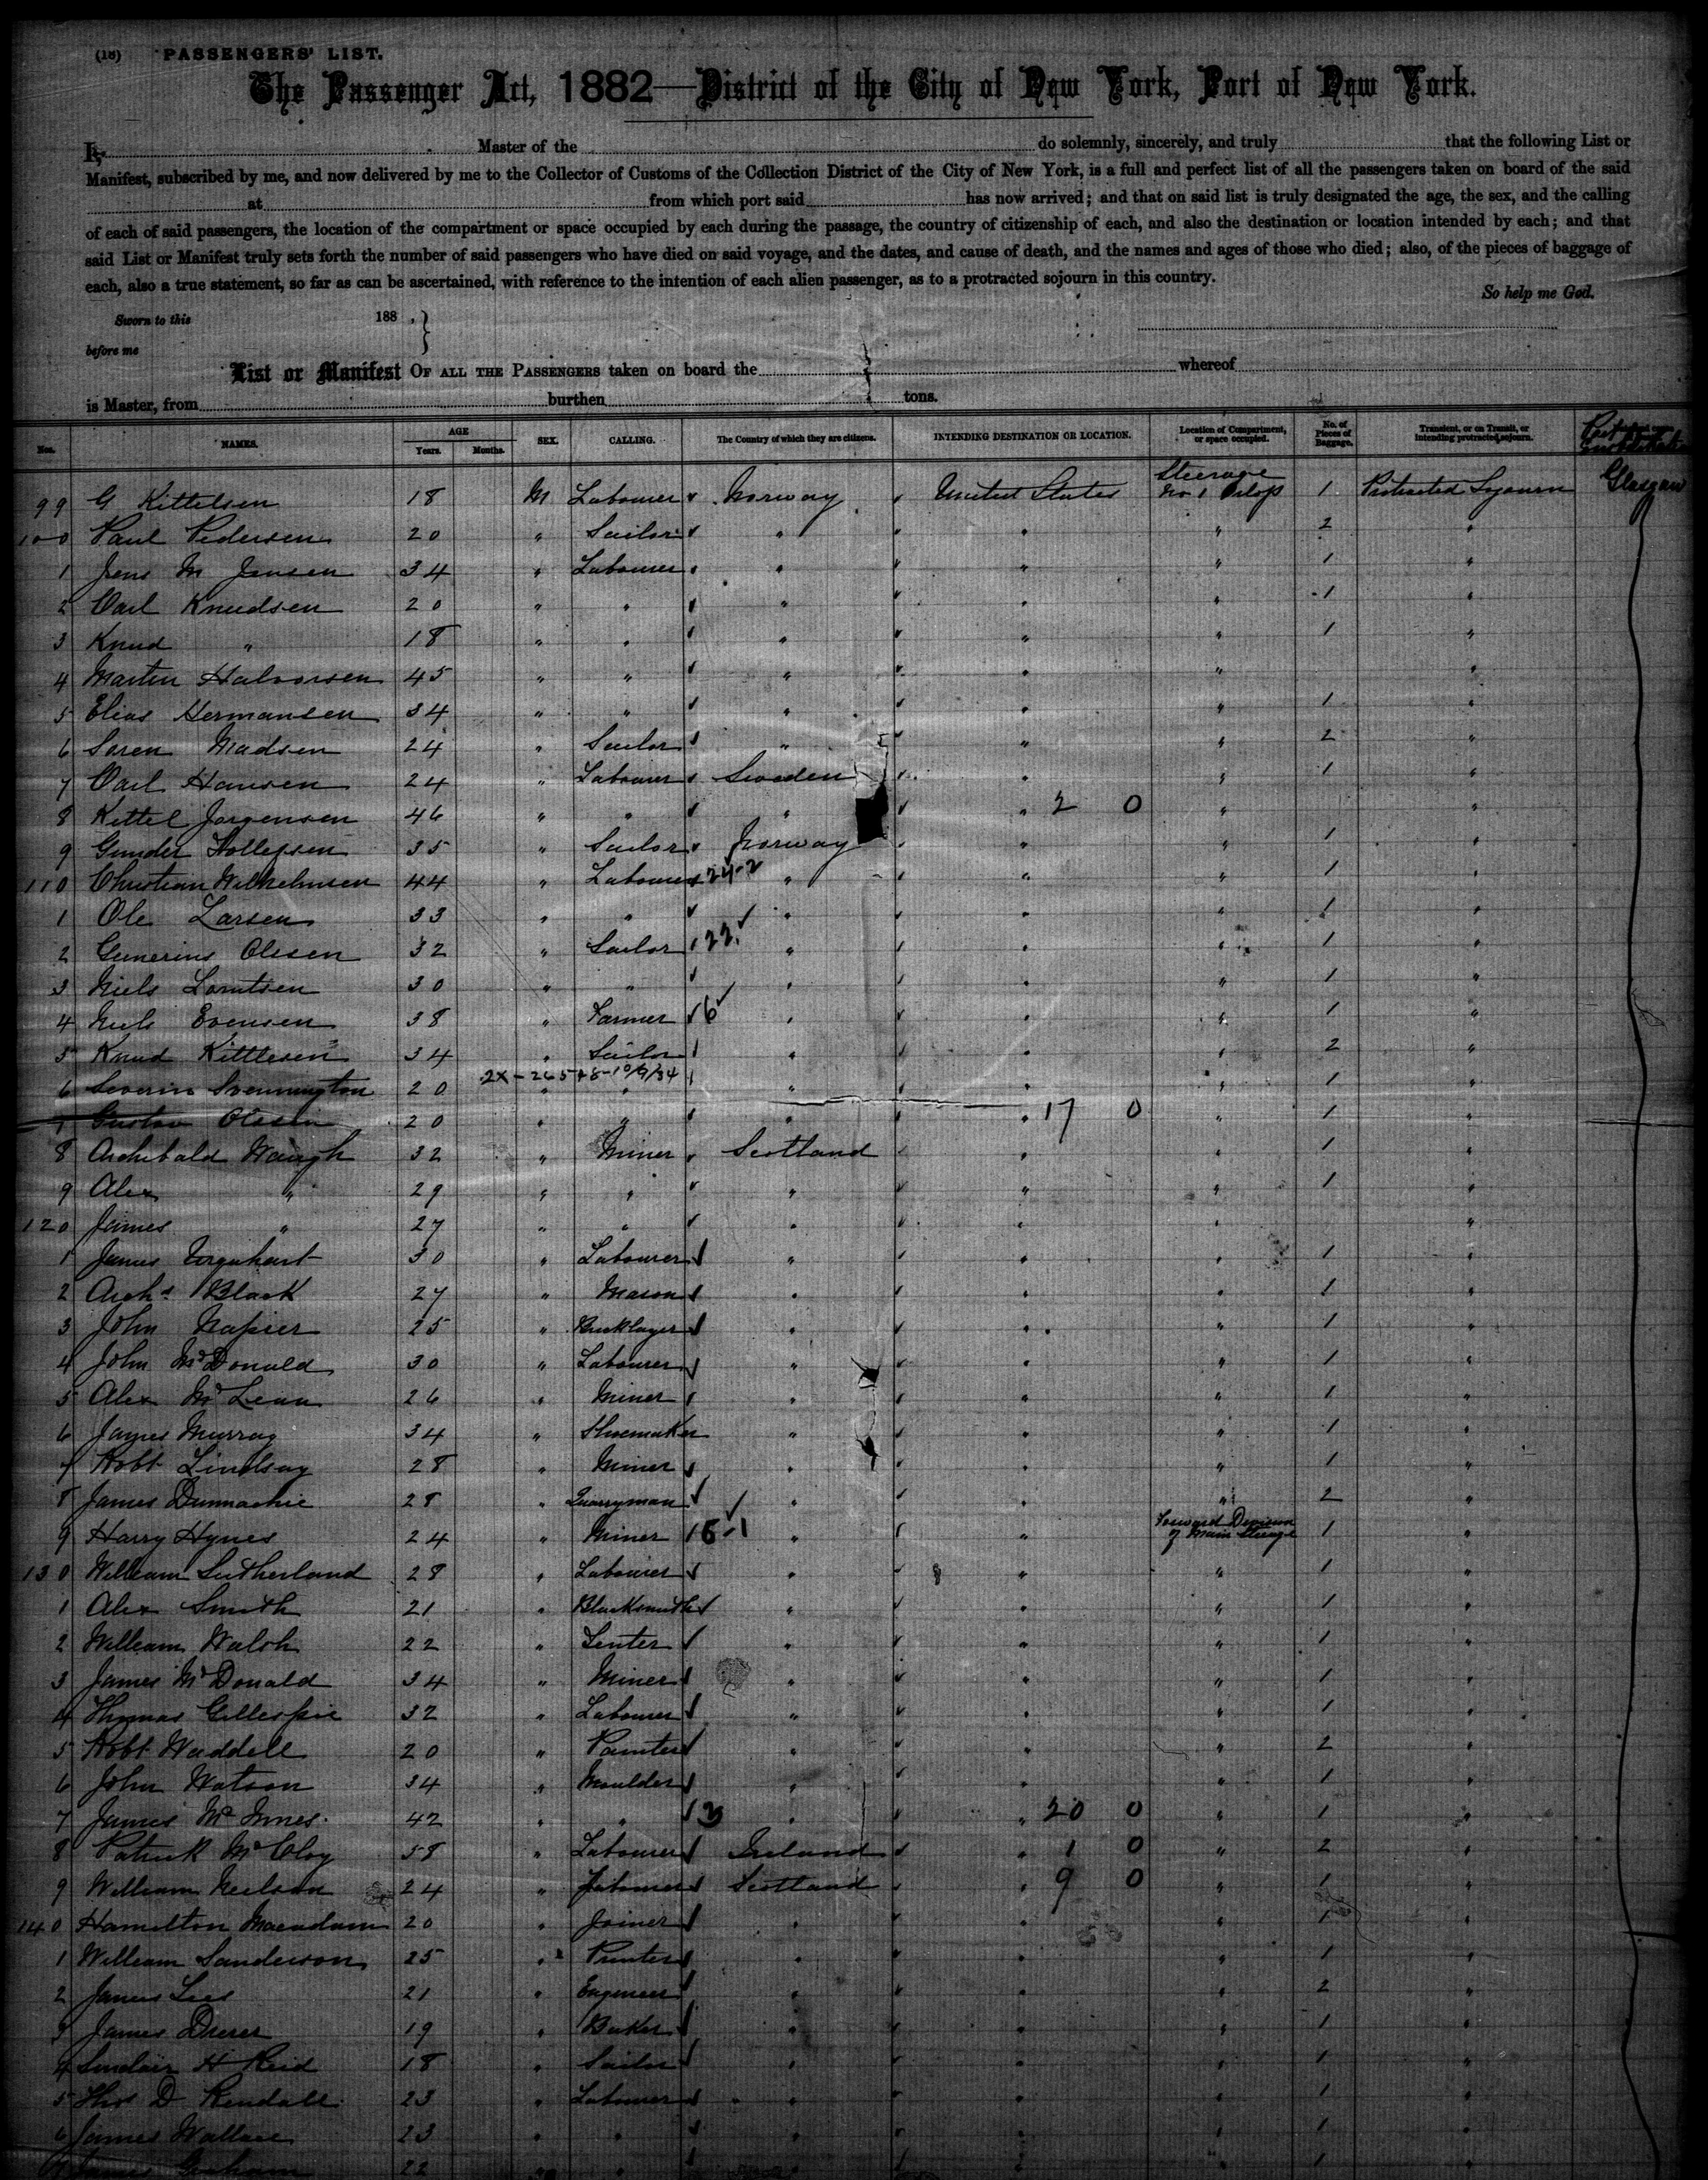 (18) PASSENGERS' LIST.
The Passenger Act, 1882—District of the City of New York, Port of New York.
I, Master of the do solemnly, sincerely, and truly that the following List or
Manifest, subscribed by me, and now delivered by me to the Collector of Customs of the Collection District of the City of New York, is a full and perfect list of all the passengers taken on board of the said
at from which port said has now arrived; and that on said list is truly designated the age, the sex, and the calling
of each of said passengers, the location of the compartment or space occupied by each during the passage, the country of citizenship of each, and also the destination or location intended by each; and that
said List or Manifest truly sets forth the number of said passengers who have died on said voyage, and the dates, and cause of death, and the names and ages of those who died; also, of the pieces of baggage of
each, also a true statement, so far as can be ascertained, with reference to the intention of each alien passenger, as to a protracted sojourn in this country.
So help me God.
Sworn to this 188 .
before me
List or Manifest OF ALL THE PASSENGERS taken on board the whereof
is Master, from burthen tons.
Nos. NAMES. AGE Years. Months. SEX. CALLING. The Country of which they are citizens. INTENDING DESTINATION OR LOCATION. Location of Compartment, or space occupied. No. of Pieces of Baggage. Transient, or on Transit, or intending protracted sojourn.
99 G Kittelsen 18 M Labourer Norway United States Steerage No 1 Orlop 1 Protracted Sojourn Glasgow
100 Paul Pedersen 20 " Sailor " " " 2 "
1 Jens M Jensen 34 " Labourer " " " 1 "
2 Carl Knudsen 20 " " " " " 1 "
3 Knud " 18 " " " " " 1 "
4 Martin Halvorsen 45 " " " " " "
5 Elias Hermansen 34 " " " " " 1 "
6 Soren Madsen 24 " Sailor " " " 2 "
7 Carl Hansen 24 " Labourer Sweden " " 1 "
8 Kittel Jorgensen 46 " " " " 2 0 " "
9 Gunder Tollefsen 35 " Sailor Norway " " 1 "
110 Christian Wilhelmsen 44 " Labourer 24-2 " " " 1 "
1 Ole Larsen 33 " " " " " 1 "
2 Gunerius Olssen 32 " Sailor 22 " " " 1 "
3 Niels Lorntsen 30 " " " " " 1 "
4 Niels Evensen 38 " Farmer 6 " " " 1 "
5 Knud Kittlesen 34 " Sailor " " " 2 "
6 Severin Svennington 20 2X-265+8-10/9/34 " " " " " 1 "
7 Gustav Olssen 20 " " " " 17 0 " 1 "
8 Archibald Waugh 32 " Miner Scotland " " 1 "
9 Alex " 29 " " " " " 1 "
120 James " 27 " " " " " "
1 James Urquhart 30 " Labourer " " " 1 "
2 Archd Black 27 " Mason " " " 1 "
3 John Napier 25 " Bricklayer " " " 1 "
4 John McDonald 30 " Labourer " " " 1 "
5 Alex McLean 26 " Miner " " " 1 "
6 James Murray 34 " Shoemaker " " " 1 "
7 Robt Lindsay 28 " Miner " " " 1 "
8 James Dunnachie 28 " Quarryman " " " 2 "
9 Harry Hynes 24 " Miner 6-1 " " Forward Division of Main Steerage 1 "
130 William Sutherland 28 " Labourer " " " 1 "
1 Alex Smith 21 " Blacksmith " " " 1 "
2 William Walsh 22 " " " " 1 "
3 James McDonald 34 " Miner " " " 1 "
4 Thomas Gillespie 32 " Labourer " " " 1 "
5 Robt Waddell 20 " Painter " " " 2 "
6 John Watson 34 " Moulder " " " 1 "
7 James McInnes 42 " " 3 " " 20 0 " 1 "
8 Patrick McCloy 58 " Labourer Ireland " 1 0 " 2 "
9 William Neilson 24 " Labourer Scotland " 9 0 " 1 "
140 Hamilton Macadam 20 " Joiner " " " 1 "
1 William Sanderson 25 " Printer " " " 1 "
2 James Lees 21 " Engineer " " " 2 "
3 James 19 " Baker " " " 1 "
4 Sinclair H Reid 18 " Sailor " " " 1 "
5 Thos D Kendall 23 " Labourer " " " 1 "
6 James Wallace 23 " " " " " 1 "
James Graham 22 " " " " " 1 "